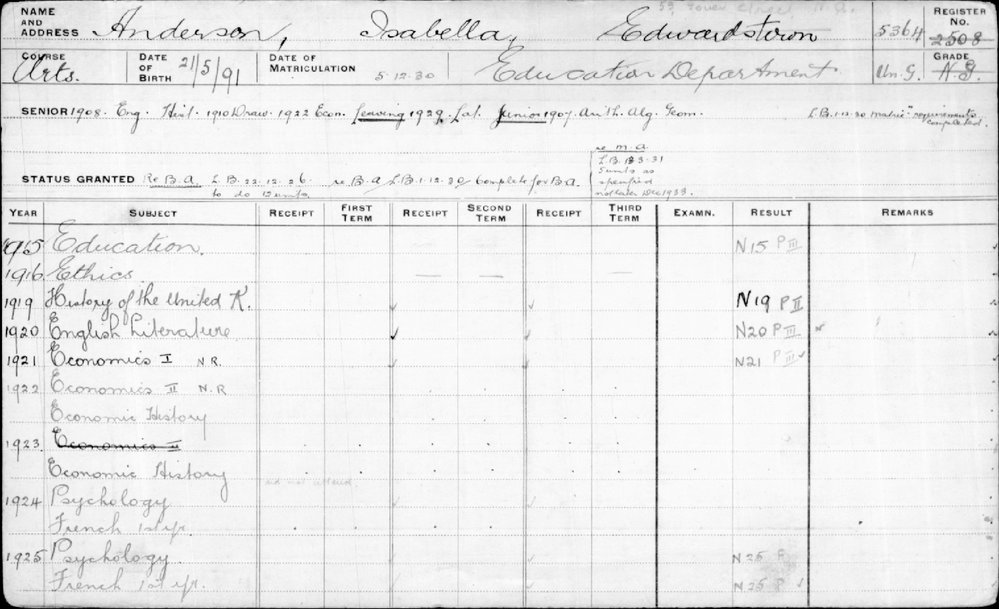 NAME AND ADDRESS Anderson, Isabella, Edwardstown 5364 REGISTER No. 2508
COURSE Arts. DATE OF BIRTH 21/5/91 DATE OF MATRICULATION 5.12.30 Education Department Un.G. GRADE N.G.
SENIOR 1908. Eng. Hist. 1910 Draw. 1922 Econ. Leaving 1929. Lat. Junior 1907. Arith. Alg. Geom. L.B. 1.12.30 matric requirements completed.
re M.A.
L.B. 18.3.31
5 units as
specified
not later Dec 1933.
STATUS GRANTED Re B.A. L.B. 22.12.26. re B.A / L.B. 1.12.30 / Complete for B.A.
to do 13 units.
YEAR SUBJECT RECEIPT FIRST TERM RECEIPT SECOND TERM RECEIPT THIRD TERM EXAMN. RESULT REMARKS
1915 Education. N15 P III
1916 Ethics. — — —
1919 History of the United K. N19 P II
1920 English Literature N20 P III
1921 Economics I N.R. N21 P III
1922 Economics II N.R
Economic History
1923 Economics II
Economic History did not attend.
1924 Psychology
French 1st yr.
1925 Psychology. N25 P
French 1st yr. N25 P